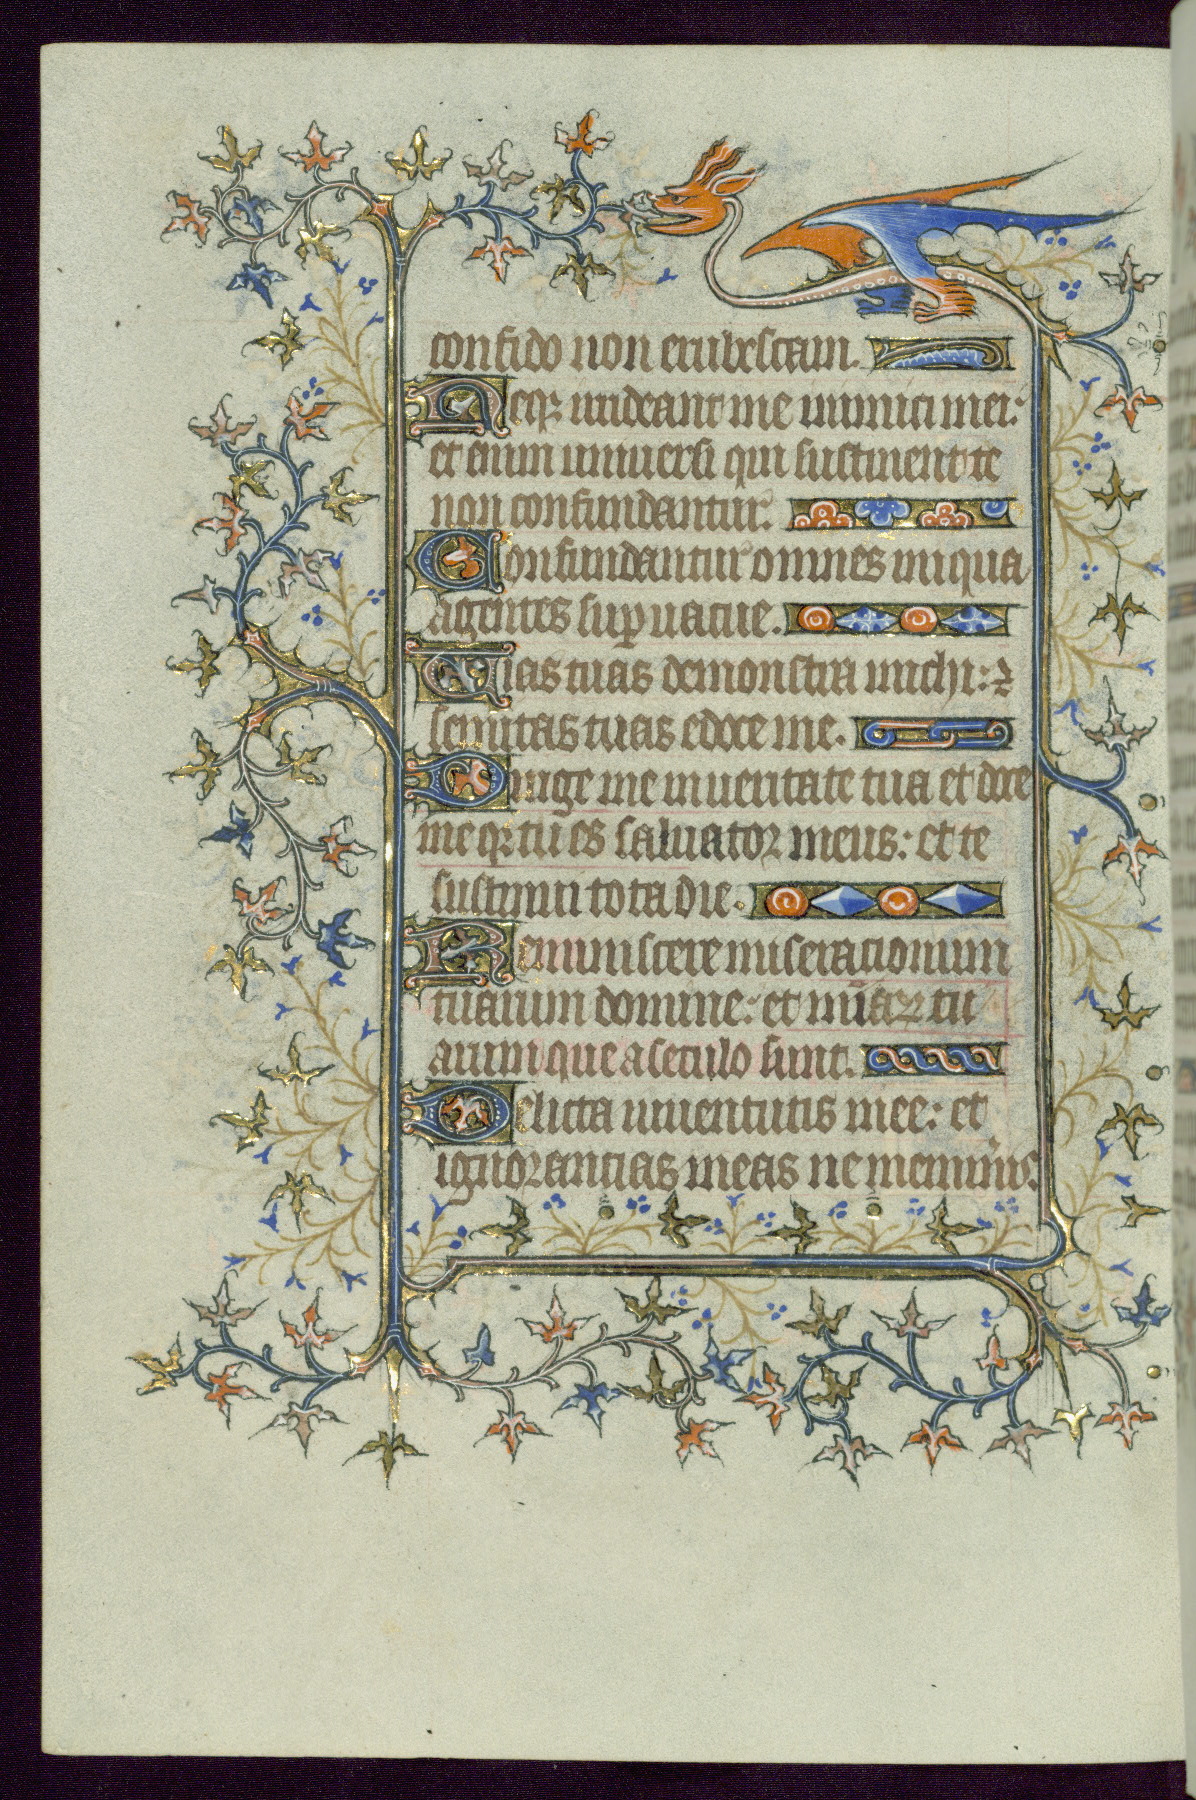 confido non erubescam.
Neq; irrideant me inimici mei:
et enim universi qui sustinent te
non confundantur.
Confundantur omnes iniqua
agentes sup uacue.
Uias tuas demonstra michi: ⁊
semitas tuas edoce me.
Dirige me in ueritate tua et doce
me q; tu es saluator meus: et te
sustinui tota die.
Reminiscere miserationum
tuarum domine: et mīaꝝ tu
arum que a seculo sunt.
Delicta iuuentutis mee: et
ignorantias meas ne meminīs.